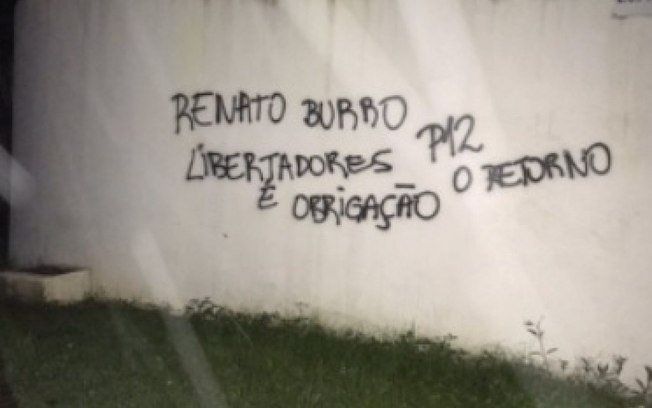 RENATO BURRO
LIBERTADORES
É OBRIGAÇÃO
P12
O RETORNO